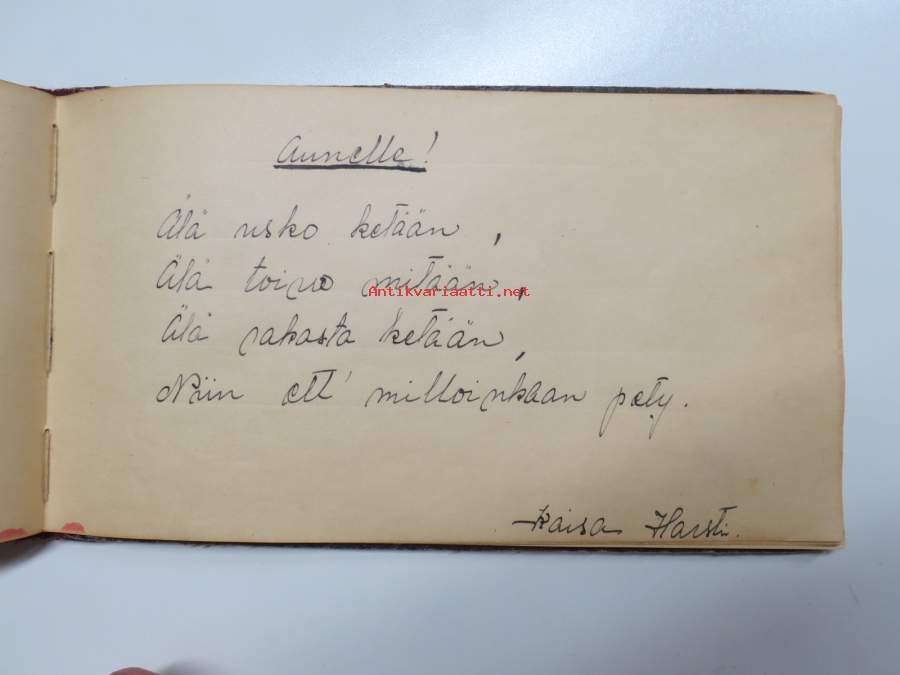 Aunelle!
Älä usko ketään,
Älä toivo mitään,
Antikvariaatti.net
Älä rakasta ketään,
Niin ett' milloinkaan pety.
Kaisa Harsti.